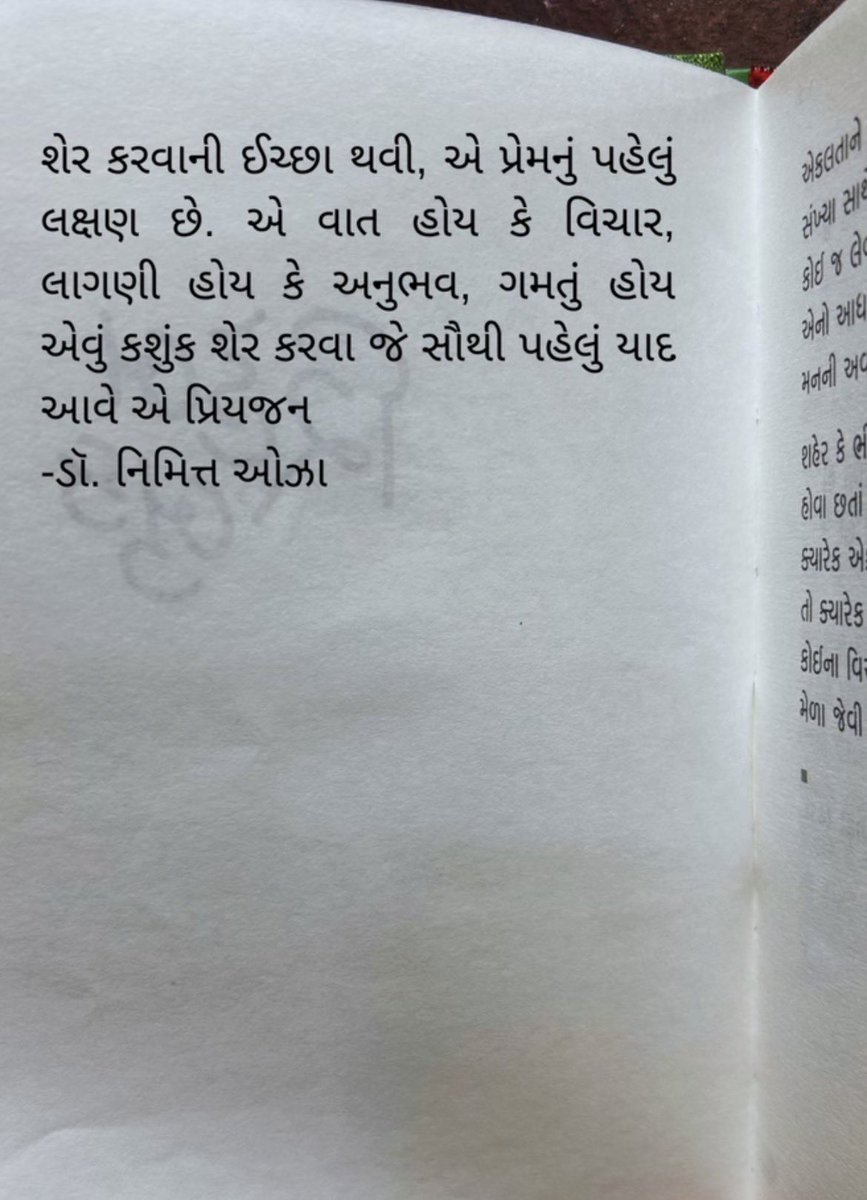 શેર કરવાની ઈચ્છા થવી, એ પ્રેમનું પહેલું
લક્ષણ છે. એ વાત હોય કે વિચાર,
લાગણી હોય કે અનુભવ, ગમતું હોય
એવું કશુંક શેર કરવા જે સૌથી પહેલું યાદ
આવે એ પ્રિયજન
-ડૉ. નિમિત્ત ઓઝા
એકલતાને
સંખ્યા
કોઈ જ
એનો
મનની
શહેર કે
હોવા છતાં
ક્યારેક
તો ક્યારેક
કોઈના
મેળા જેવી